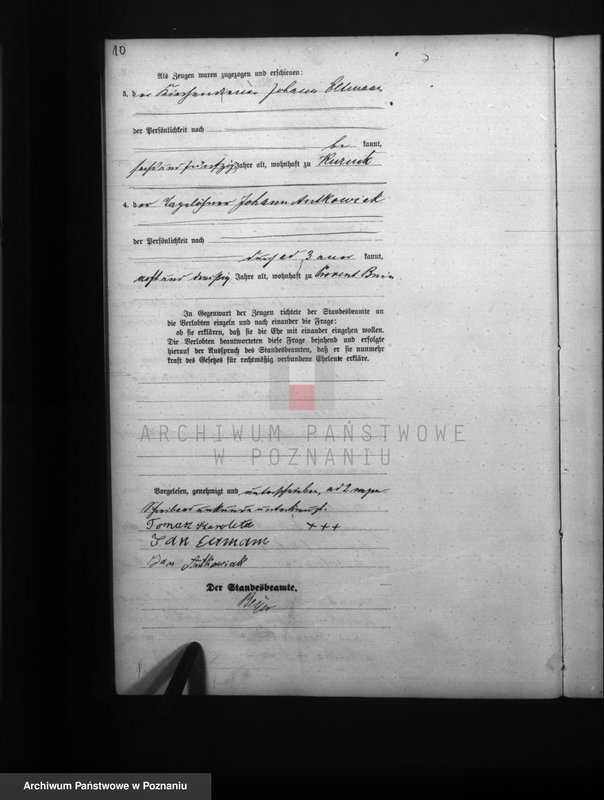 10
Als Zeugen waren zugezogen und erschienen:
3. der Kirchendiener Johann Eltmann
der Persönlichkeit nach
be kannt,
sechs und fünfzig Jahre alt, wohnhaft zu Kurnik
4. der Tagelöhner Johann Antkowiak
der Persönlichkeit nach
durch ad 3 aner kannt,
und dreißig Jahre alt, wohnhaft zu Provent Bnin
In Gegenwart der Zeugen richtete der Standesbeamte an
die Verlobten einzeln und nach einander die Frage:
ob sie erklären, daß sie die Ehe mit einander eingehen wollen.
Die Verlobten beantworteten diese Frage bejahend und erfolgte
hierauf der Ausspruch des Standesbeamten, daß er sie nunmehr
kraft des Gesetzes für rechtmäßig verbundene Eheleute erkläre.
ARCHIWUM PAŃSTWOWE
W POZNANIU
Vorgelesen, genehmigt und unterschrieben, ad 2 wegen
Schreibensunkunde unterkreuzt.
Tomasz +++
Jan
Jan Antkowiak
Der Standesbeamte.
Archiwum Państwowe w Poznaniu